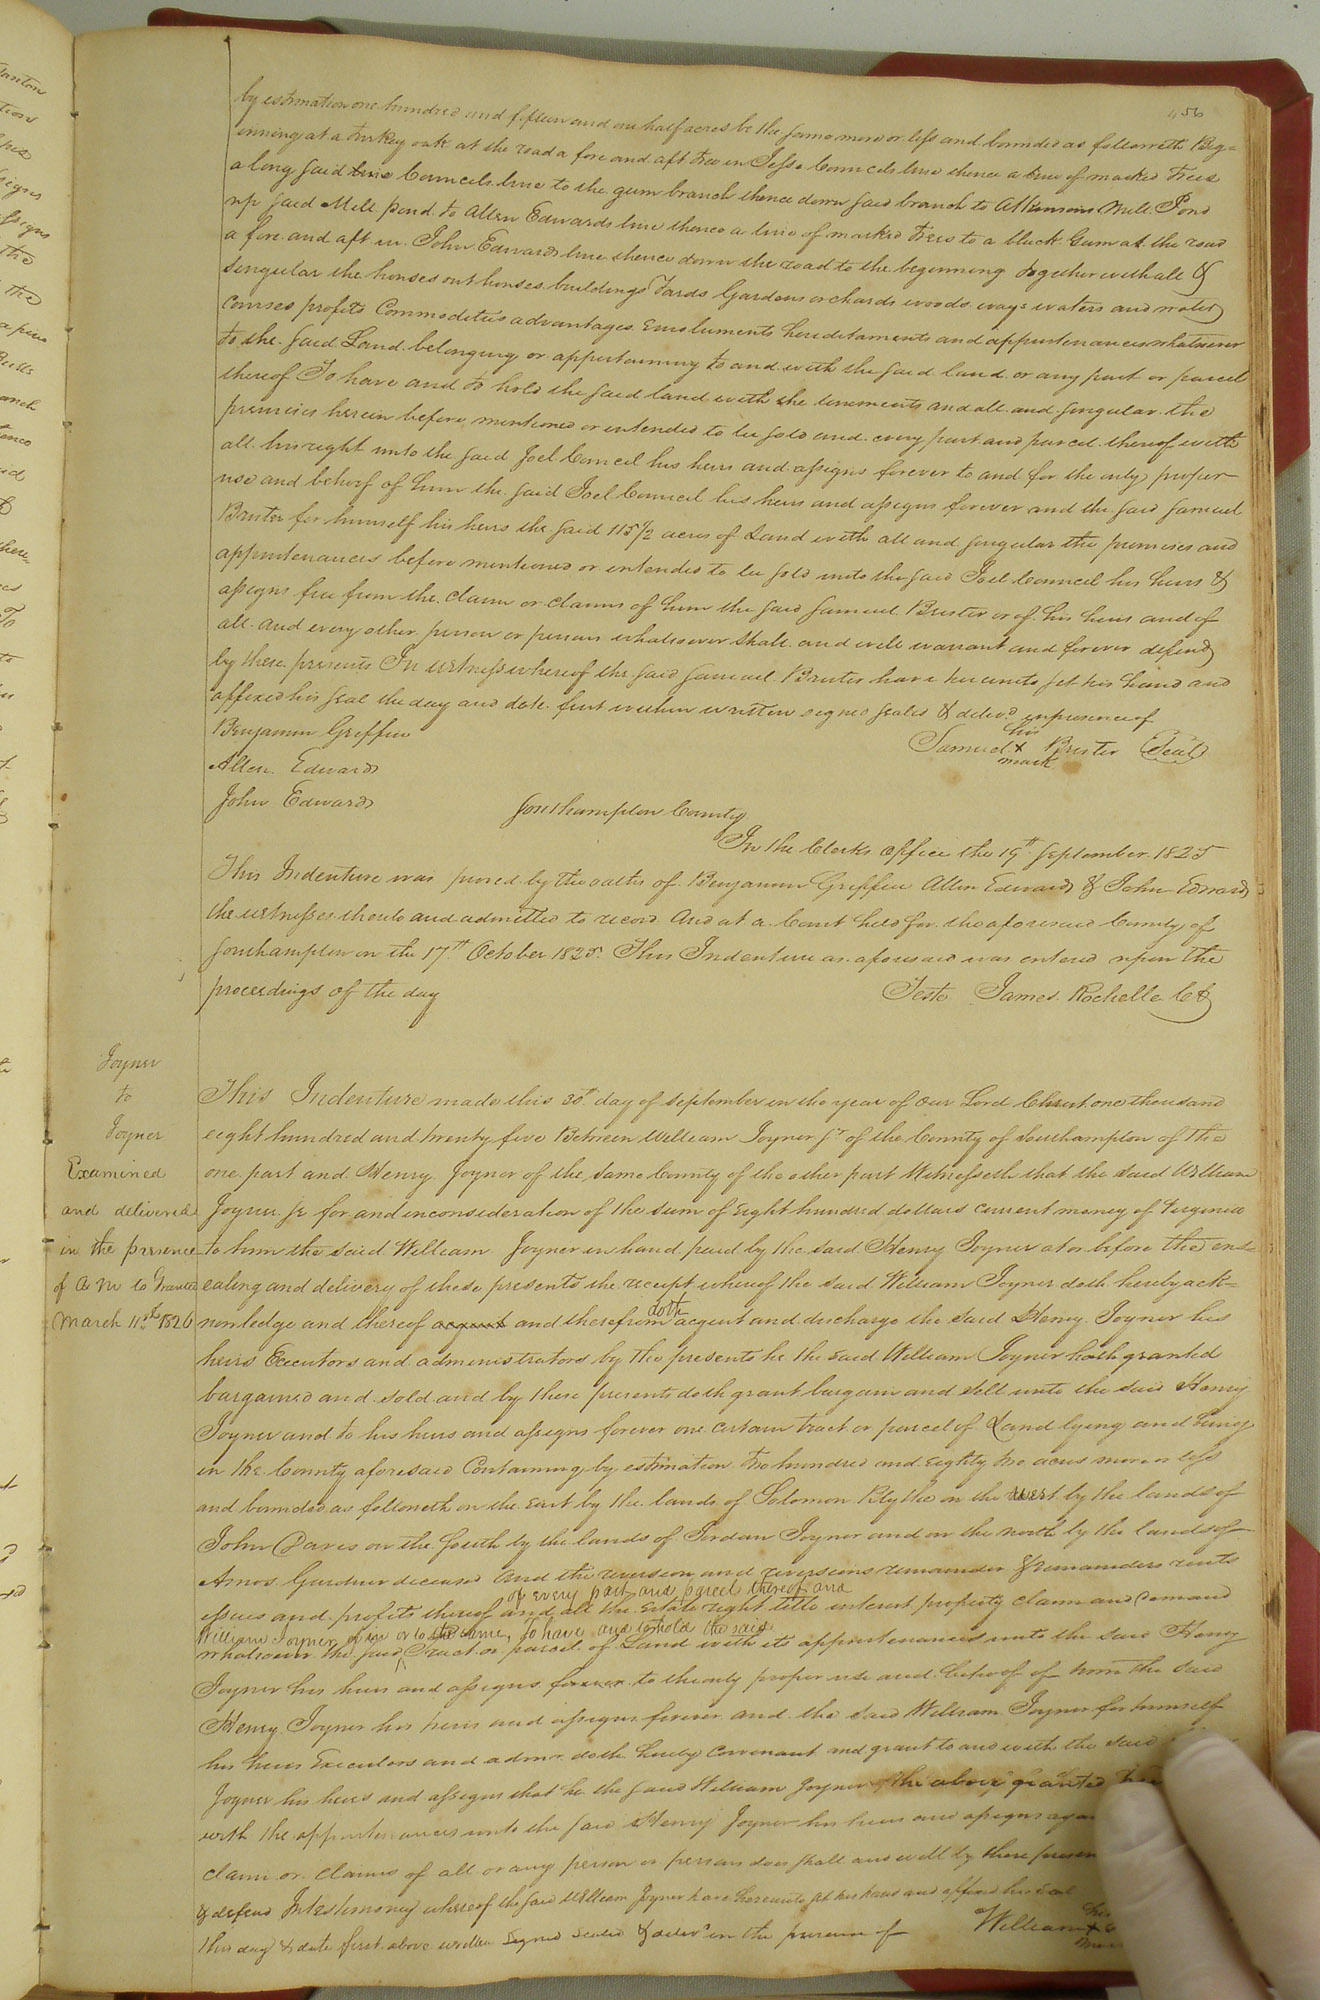 456
by estimation one hundred and fifteen and one half acres be the same more or less and bounded as followeth Beg=
inning at a turkey oak at the road a fore and aft tree in Jesse Councels line thence a line of marked trees
along said Councels line to the gum branch thence down said branch to Atkinsons Mill Pond
up said Mill Pond to Allen Edwards line thence a line of marked trees to a black Gum at the road
a fore and aft in John Edwards line thence down the road to the beginning together with all &
singular the houses out houses buildings Yards Gardens orchards woods ways waters and water
courses profits Commodities advantages Emoluments hereditaments and appurtenances whatsoever
to the said Land belonging or appertaining to and with the said land or any part or parcel
thereof To have and to hold the said land with the tenements and all and singular the
premises herein before mentioned or intended to be sold and every part and parcel thereof with
all his right unto the said Joel Council his heirs and assigns forever to and for the only proper
use and behoof of him the said Joel Council his heirs and assigns forever and the said Samuel
Brister for himself his heirs the said 115 1/2 acres of Land with all and singular the premises and
appurtenances before mentioned or intended to be sold unto the said Joel Council his heirs &
assigns free from the claim or claims of him the said Samuel Brister or of his heirs and of
all and every other person or persons whatsoever shall and will warrant and forever defend
by these presents In witness whereof the said Samuel Brister have hereunto set his hand and
affixed his seal the day and date first within written signed sealed & delivd in presence of
Benjamin Griffin
his
Samuel x Brister Seal
mark
Allen Edwards
John Edwards
Southampton County
In the Clerks office the 19th September 1825
This Indenture was proved by the oaths of Benjamin Griffin Allen Edwards & John Edwards
the witnesses thereto and admitted to record And at a Court held for the aforesaid County of
Southampton on the 17th October 1825 This Indenture as aforesaid was entered upon the
proceedings of the day
Teste James Rochelle CC
Joyner
to
Joyner
Examined
and delivered
in the presence
of
March 11th 1826
This Indenture made this 30th day of September in the year of our Lord Christ one thousand
eight hundred and twenty five Between William Joyner Jr of the County of Southampton of the
one part and Henry Joyner of the same County of the other part Witnesseth that the said William
Joyner Jr for and inconsideration of the sum of Eight hundred dollars current money of Virginia
to him the said William Joyner in hand paid by the said Henry Joyner at or before the ens=
ealing and delivery of these presents the receipt whereof the said William Joyner doth hereby ack=
nowledge and thereof acquit and therefrom doth acquit and discharge the said Henry Joyner his
heirs Executors and administrators by the presents he the said William Joyner hath granted
bargained and sold and by these presents doth grant bargain and sell unto the said Henry
Joyner and to his heirs and assigns forever one certain tract or parcel of Land lying and being
in the County aforesaid Containing by estimation two hundred and Eighty two acres more or less
and bounded as followeth on the East by the lands of Solomon Blythe on the west by the lands of
John Davis on the South by the lands of Jordan Joyner and on the north by the lands of
Amos Gardner deceased And the reversion and reversions remainder & remainders rents
of every part and parcel thereof and
issues and profits thereof and all the Estate right title interest property claim and Demand
William Joyner of in or to the same, To have and to hold the said
whatsoever the said Tract or parcel of Land with its appurtenances unto the said Henry
Joyner his heirs and assigns forever to the only proper use and behoof of him the said
Henry Joyner his heirs and assigns forever and the said William Joyner for himself
his heirs Executors and admrs doth hereby Covenant and grant to and with the said
Joyner his heirs and assigns that he the said William Joyner the above granted
with the appurtenances unto the said Henry Joyner his heirs and assigns
claim or claims of all or any person or persons does shall and will by these
& defend In testimony whereof the said William Joyner have hereunto set his hand and affixed his seal
this day & date first above written Signed Sealed & delivd in the presence of
his
William x